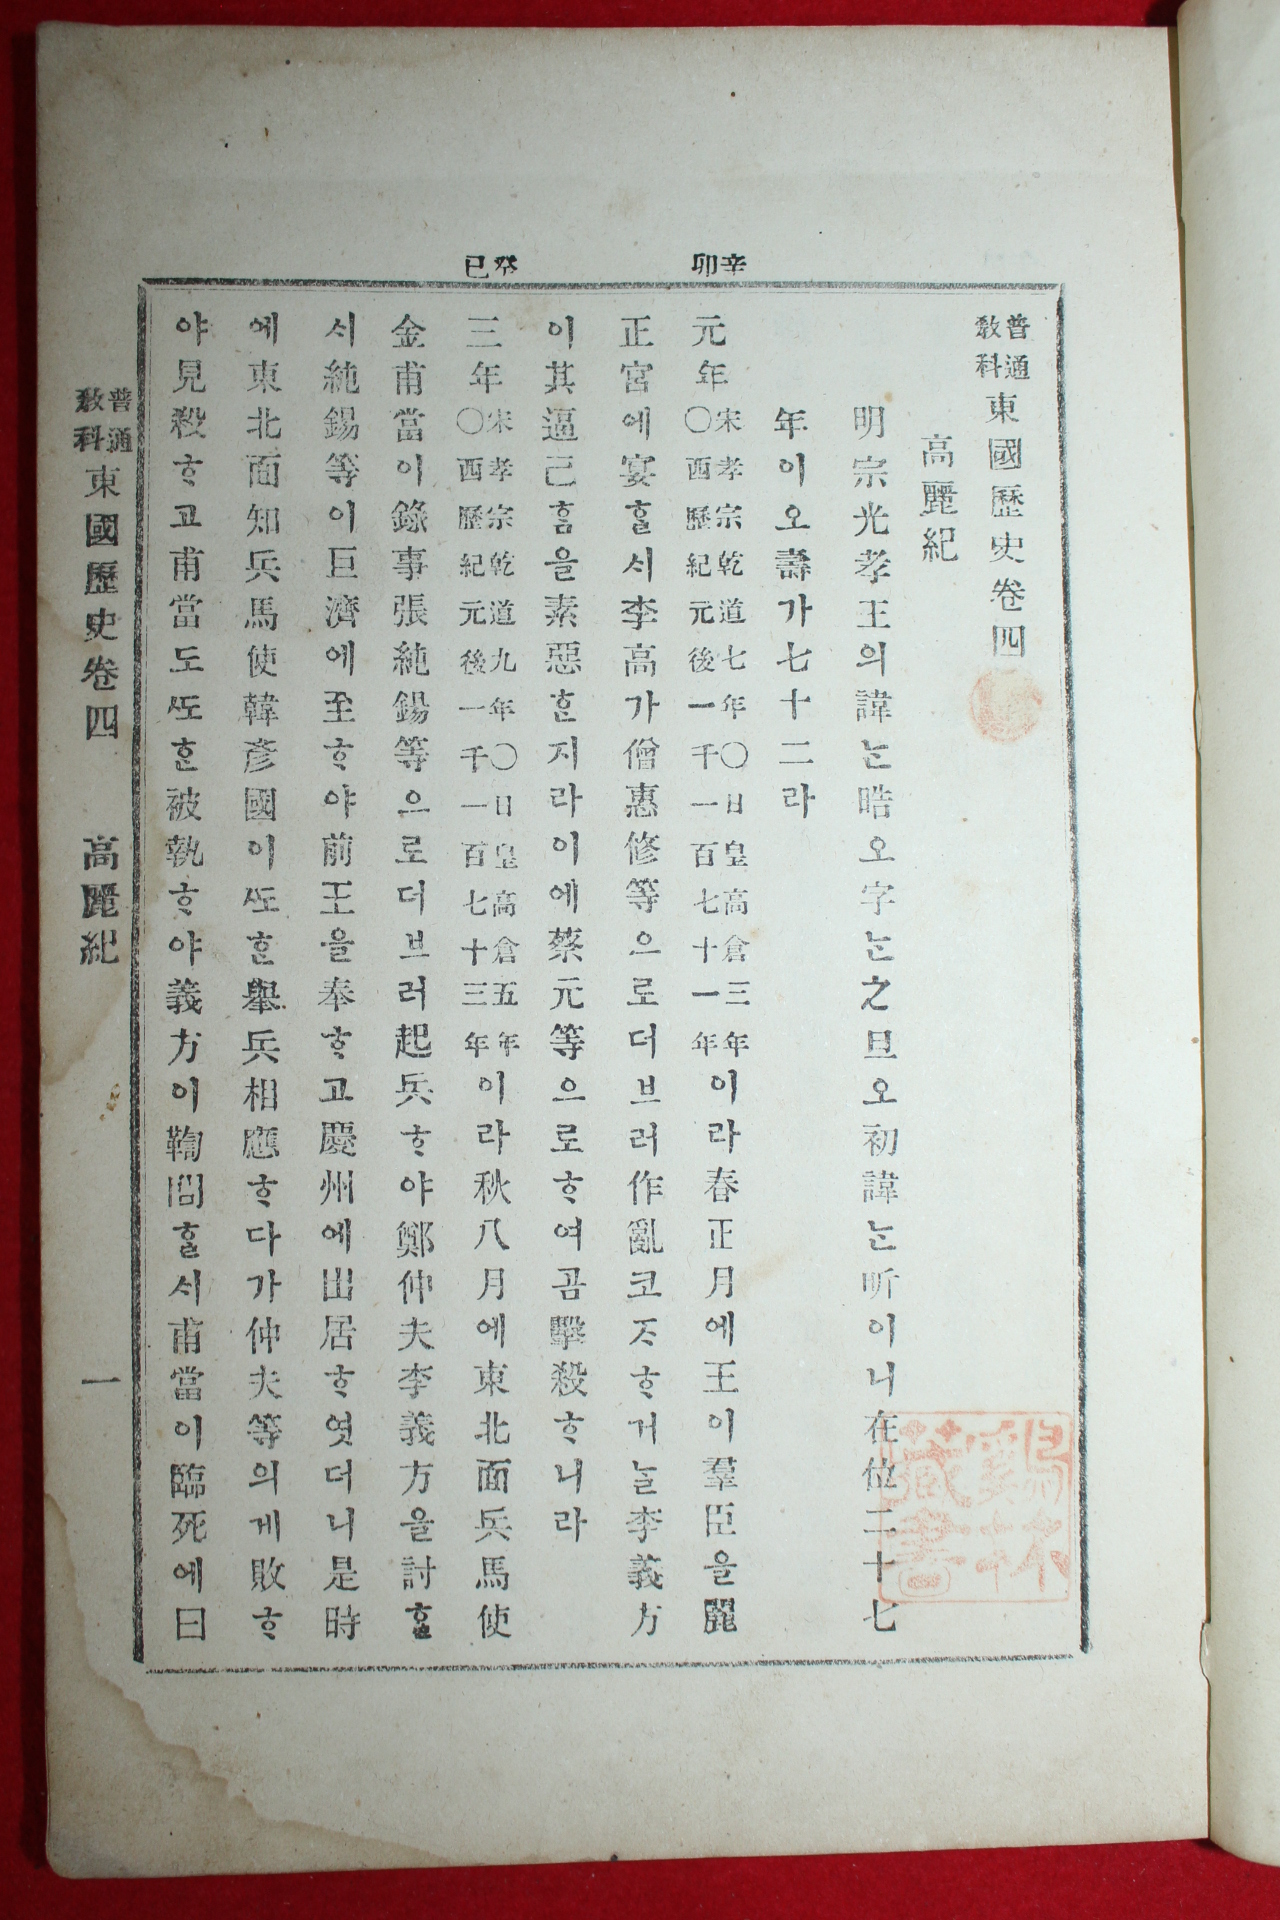 辛卯
癸巳
普通教科東國歷史卷四
高麗紀
明宗光孝王의諱ᄂᆞᆫ晧오字ᄂᆞᆫ之旦오初諱ᄂᆞᆫ昕이니在位二十七
年이오壽가七十二라
元年宋孝宗乾道七年〇日皇高倉三年〇西歷紀元後一千一百七十一年이라春正月에王이羣臣을麗
正宮에宴ᄒᆞᆯᄉᆡ李高가僧惠修等으로더브러作亂코ᄌᆞᄒᆞ거ᄂᆞᆯ李義方
이其逼己ᄒᆞᆷ을素惡ᄒᆞᆫ지라이에蔡元等으로ᄒᆞ여곰擊殺ᄒᆞ니라
三年宋孝宗乾道九年〇日皇高倉五年〇西歷紀元後一千一百七十三年이라秋八月에東北面兵馬使
金甫當이錄事張純錫等으로더브러起兵ᄒᆞ야鄭仲夫李義方을討ᄒᆞᆯ
시純錫等이巨濟에至ᄒᆞ야前王을奉ᄒᆞ고慶州에出居ᄒᆞ엿더니是時
에東北面知兵馬使韓彥國이ᄯᅩᄒᆞᆫ擧兵相應ᄒᆞ다가仲夫等의게敗ᄒᆞ
야見殺ᄒᆞ고甫當도ᄯᅩᄒᆞᆫ被執ᄒᆞ야義方이鞫問ᄒᆞᆯ시甫當이臨死에曰
普通教科東國歷史卷四 高麗紀 一
鷄林
藏書